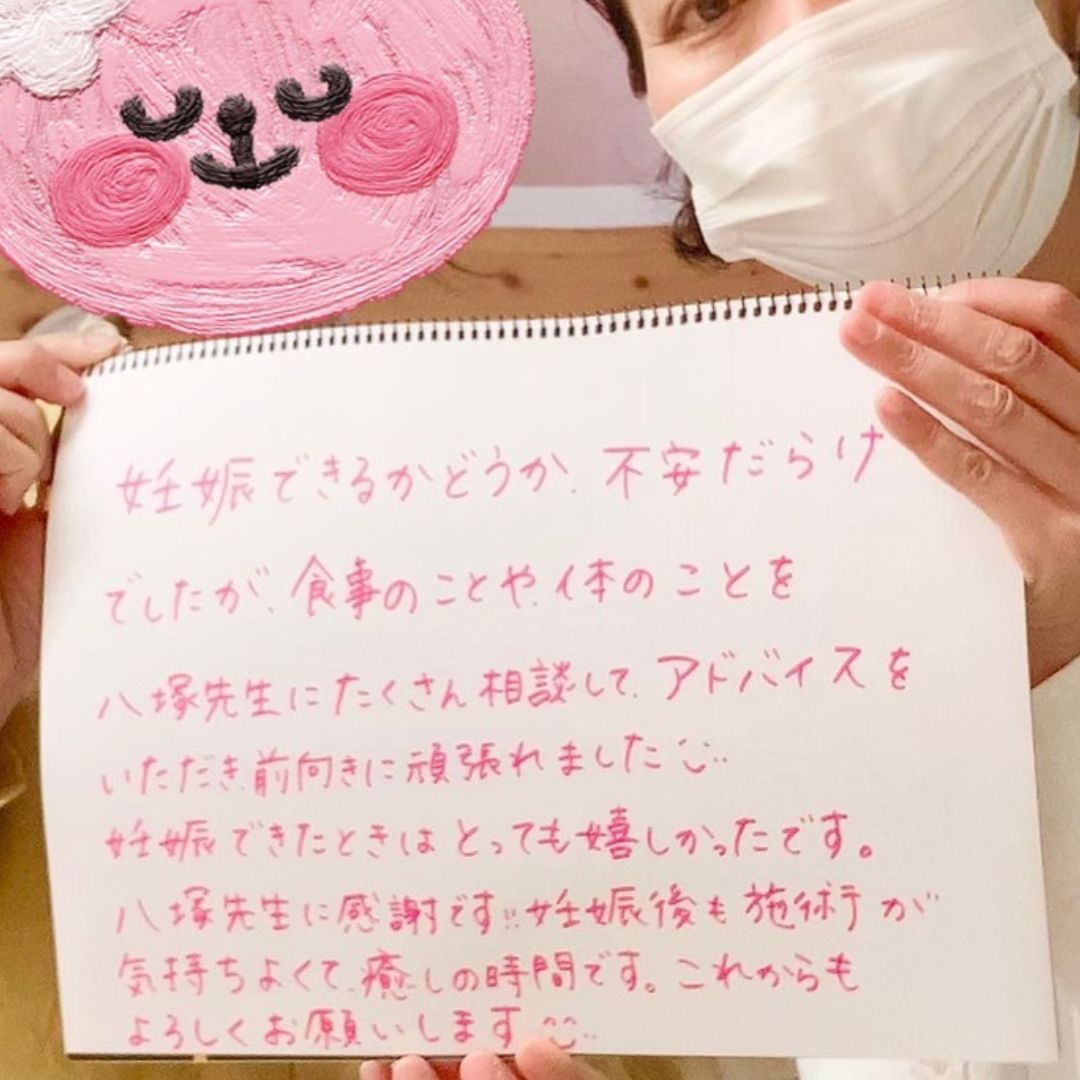 妊娠できるかどうか、不安だらけ
でしたが、食事のことや、体のことを
八塚先生にたくさん相談して、アドバイスを
いただき、前向きに頑張れました
妊娠できたときはとっても嬉しかったです。
八塚先生に感謝です!!妊娠後も施術が
気持ちよくて、癒しの時間です。これからも
よろしくお願いします